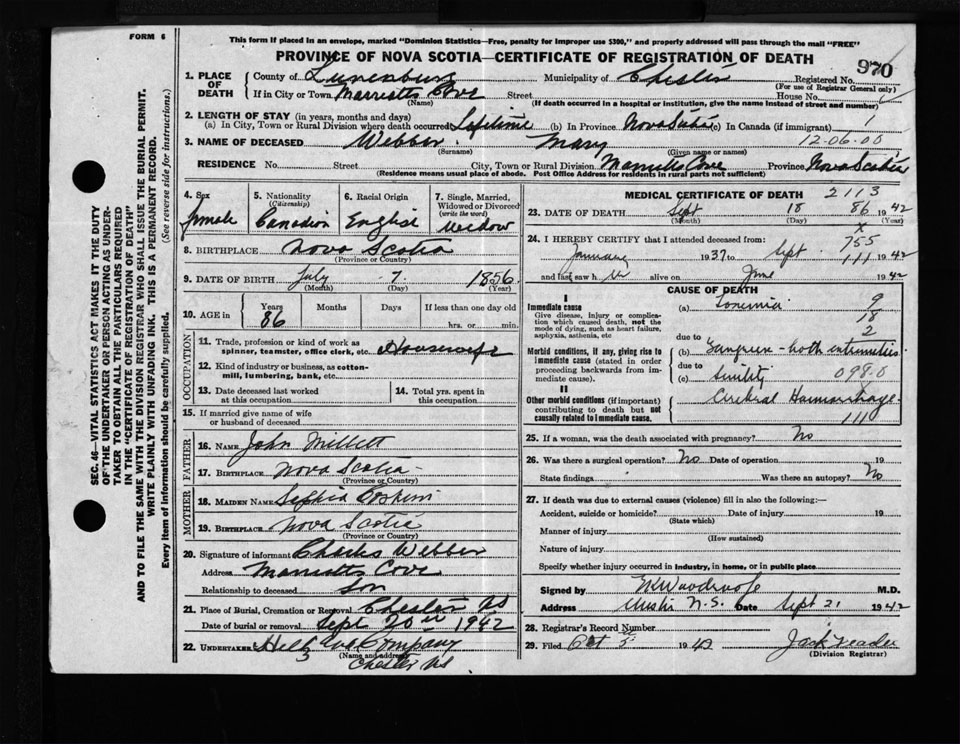 FORM 6
This form if placed in an envelope, marked "Dominion Statistics—Free, penalty for improper use $300," and properly addressed will pass through the mail "FREE"
PROVINCE OF NOVA SCOTIA—CERTIFICATE OF REGISTRATION OF DEATH
970
1. PLACE OF DEATH
County of Lunenburg Municipality of Chester Registered No.
(For use of Registrar General only)
If in City or Town Marriotts Cove Street House No.
(Name) (If death occurred in a hospital or institution, give the name instead of street and number)
2. LENGTH OF STAY (in years, months and days)
(a) In City, Town or Rural Division where death occurred Lifetime (b) In Province Nova Scotia (c) In Canada (if immigrant) 1
3. NAME OF DECEASED Webber Mary 12-06-00
(Surname) (Given name or names)
RESIDENCE No. Street City, Town or Rural Division Marriotts Cove Province Nova Scotia
(Residence means usual place of abode. Post Office Address for residents in rural parts not sufficient)
4. Sex
Female
5. Nationality
(Citizenship)
Canadian
6. Racial Origin
English
7. Single, Married, Widowed or Divorced
(write the word)
Widow
8. BIRTHPLACE Nova Scotia
(Province or Country)
9. DATE OF BIRTH July 7 1856
(Month) (Day) (Year)
10. AGE in Years Months Days If less than one day old
86 hrs. or min.
OCCUPATION
11. Trade, profession or kind of work as spinner, teamster, office clerk, etc. Housewife
12. Kind of industry or business, as cotton-mill, lumbering, bank, etc.
13. Date deceased last worked at this occupation
14. Total yrs. spent in this occupation
15. If married give name of wife or husband of deceased
FATHER
16. NAME John Millett
17. BIRTHPLACE Nova Scotia
(Province or Country)
MOTHER
18. MAIDEN NAME Sophia
19. BIRTHPLACE Nova Scotia
(Province or Country)
20. Signature of informant Charles Webber
Address Marriotts Cove
Relationship to deceased Son
21. Place of Burial, Cremation or Removal Chester NS
Date of burial or removal Sept 20th 1942
22. UNDERTAKER Company
(Name and address)
Chester NS
MEDICAL CERTIFICATE OF DEATH 2113
23. DATE OF DEATH Sept 18 86 1942
(Month) (Day) (Year)
24. I HEREBY CERTIFY that I attended deceased from:
x
755
January 1937 to Sept 111 1942
and last saw h er alive on June 1942
CAUSE OF DEATH
I
Immediate cause
Give disease, injury or complication which caused death, not the mode of dying, such as heart failure, asphyxia, asthenia, etc
(a) 9
18
due to 2
Morbid conditions, if any, giving rise to immediate cause (stated in order proceeding backwards from immediate cause).
(b) Gangrene - both extremities
due to
(c) Senility 098.0
x
II
Other morbid conditions (if important) contributing to death but not causally related to immediate cause.
Cerebral Haemorrhage
111
25. If a woman, was the death associated with pregnancy? No
26. Was there a surgical operation? No Date of operation 19
State findings Was there an autopsy? No
27. If death was due to external causes (violence) fill in also the following:—
Accident, suicide or homicide? Date of injury 19
(State which)
Manner of injury
(How sustained)
Nature of injury
Specify whether injury occurred in industry, in home, or in public place
Signed by M.D.
Address Chester N.S. Date Sept 21 1942
28. Registrar's Record Number
29. Filed Oct 5 1942
(Division Registrar)
SEC. 46—VITAL STATISTICS ACT MAKES IT THE DUTY
OF THE UNDERTAKER OR PERSON ACTING AS UNDER-
TAKER TO OBTAIN ALL THE PARTICULARS REQUIRED
IN THE "CERTIFICATE OF REGISTRATION OF DEATH"
AND TO FILE THE SAME WITH THE DIVISION REGISTRAR WHO SHALL ISSUE THE BURIAL PERMIT.
WRITE PLAINLY WITH UNFADING INK. THIS IS A PERMANENT RECORD.
Every item of information should be carefully supplied. (See reverse side for instructions.)